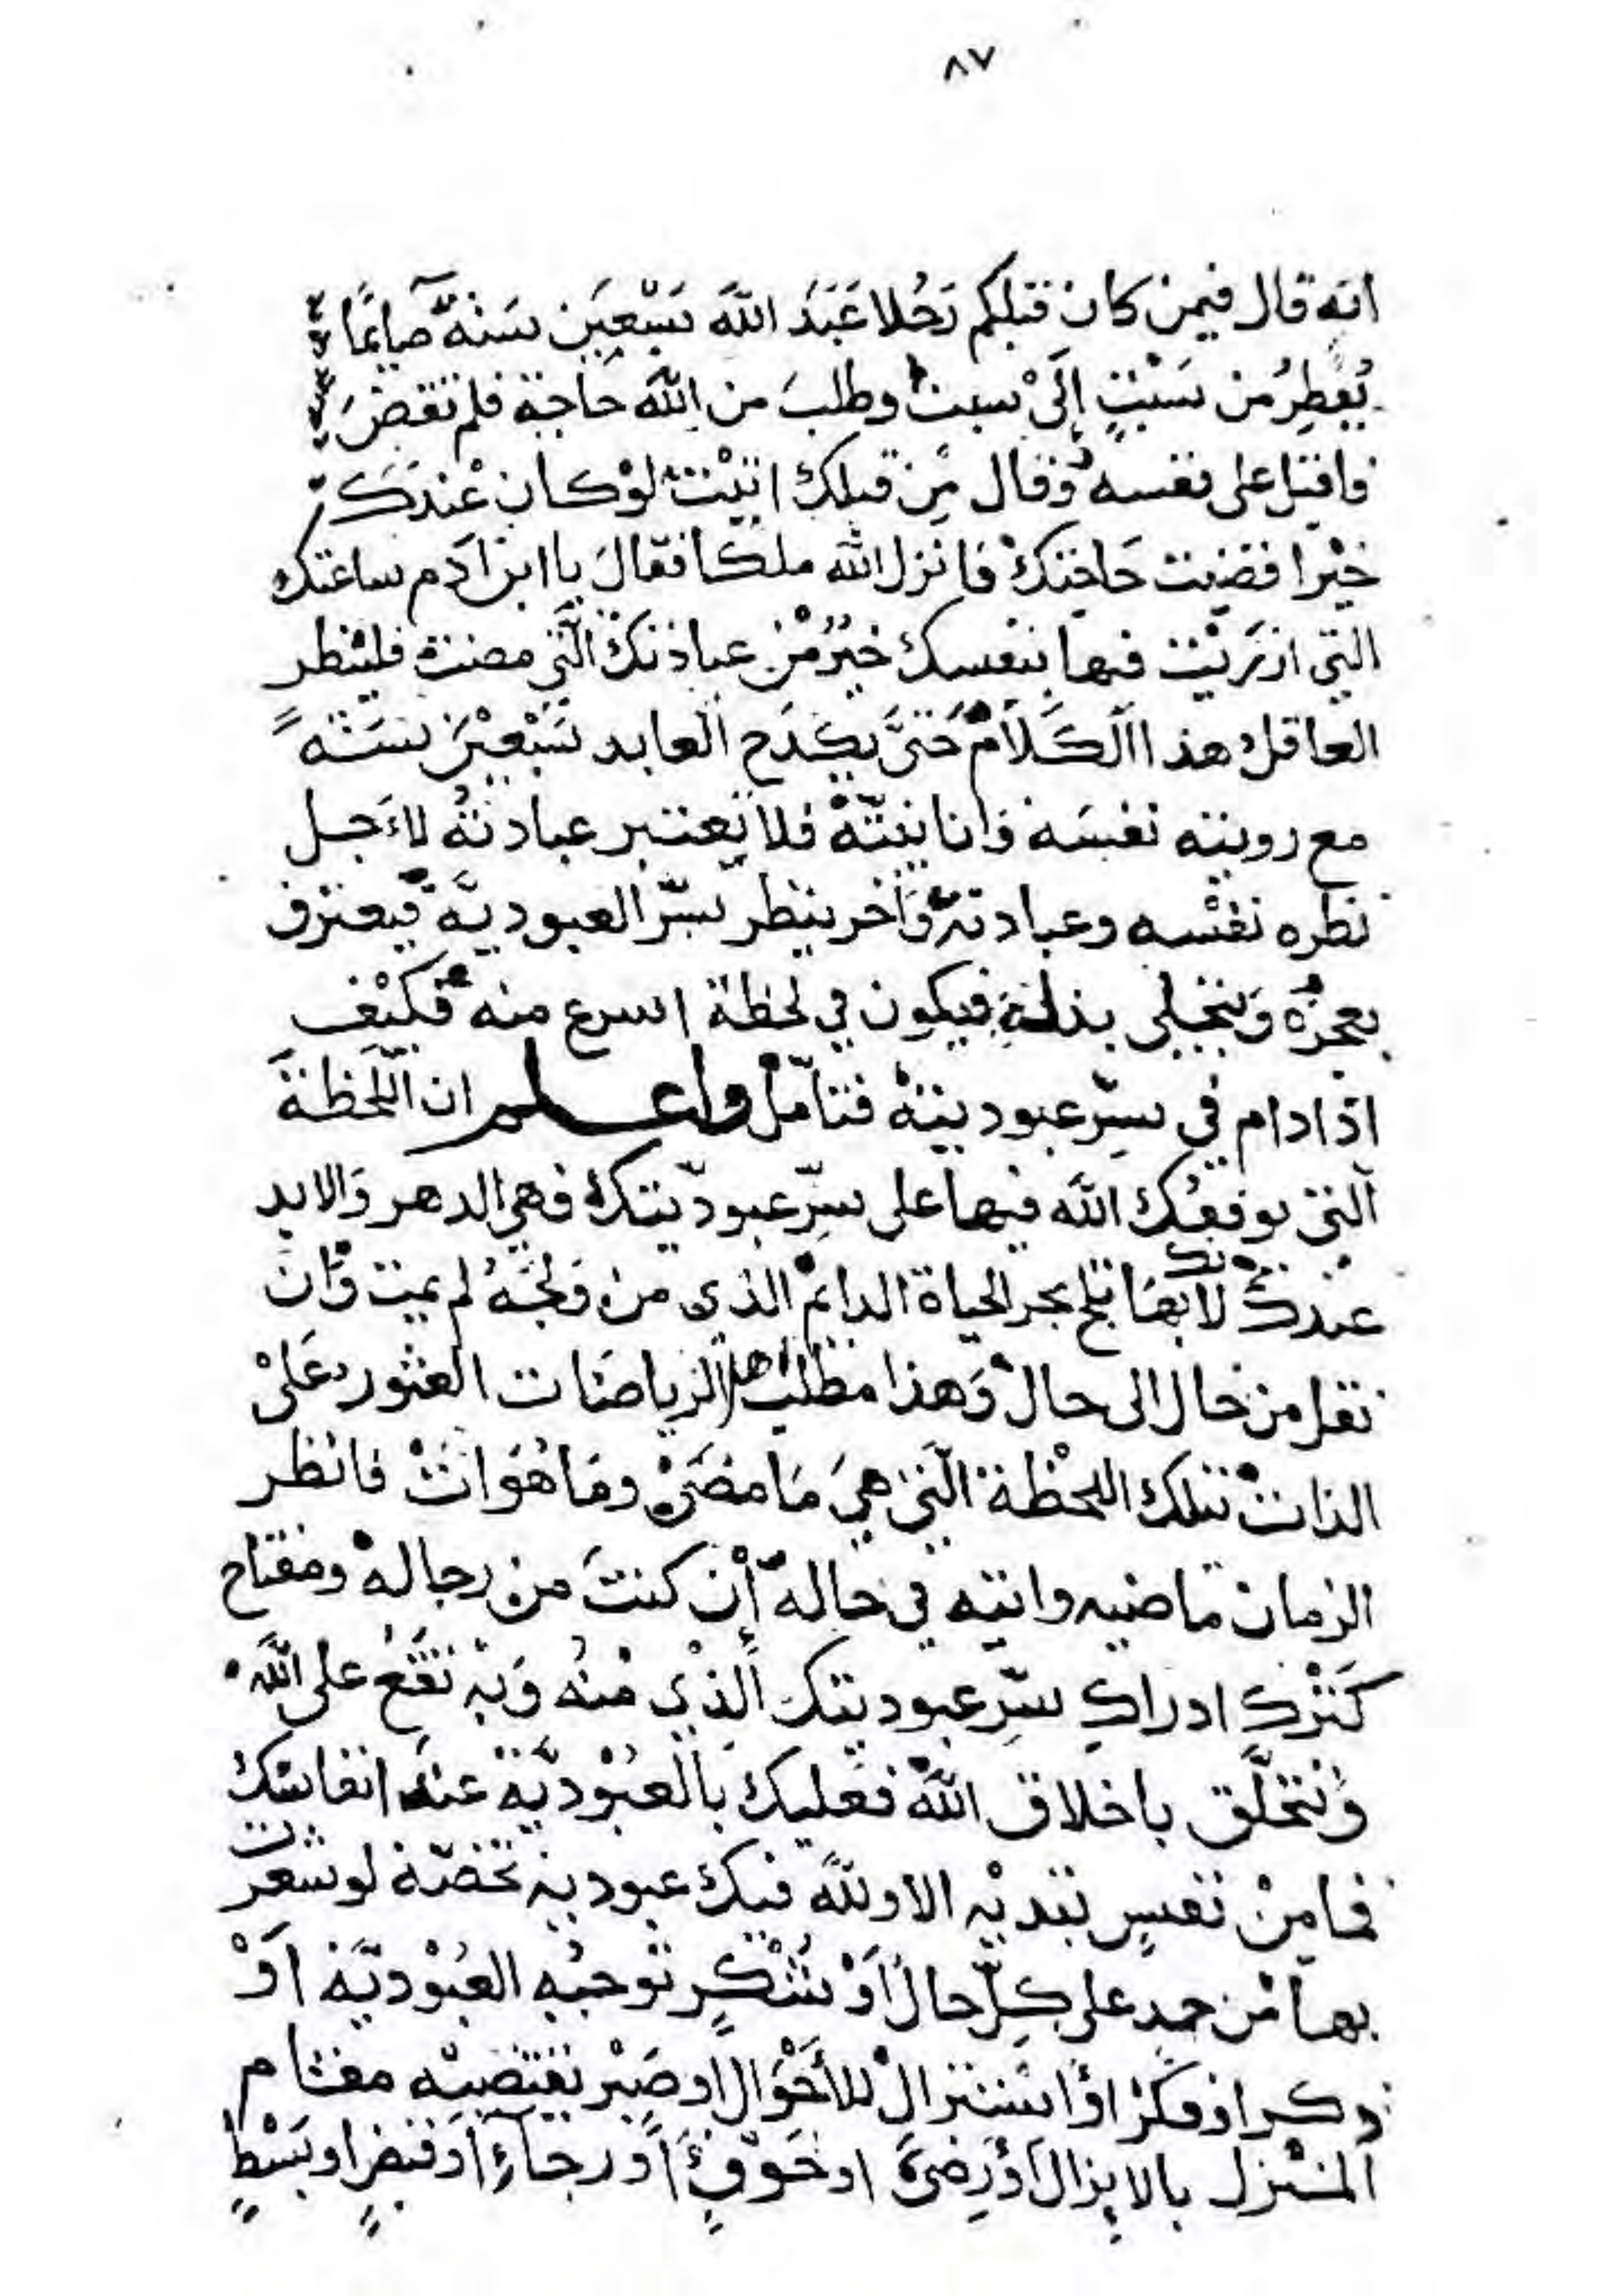 ٨٧
انه قال فيمن كان قبلكم رَجُلا عَبَدَ اللّٰهَ سَبْعِيَن سَنَةً صايمًا
يُفطِرُ من سَبْتٍ إلَىْ سبت وطلبَ من اللّٰه حاجة فلم تقضَ
فاقبل على نفسه وقال مِن قبلك اتيْت لوْ كان عْندَك
خيْرا قضيت حَاجتكْ فانزل اللّٰه ملكا فقالَ يا ابن آدم ساعتك
التي ازرَيْت فيها بنفسك خيرٌ مْن عبادتكَ الَّتي مضت فلينظر
العاقل هذا الكَلَامْ حَتىَّ يكدَح العابد سَبْعيْنَ سَنَةً
مع رويته نفسَه وانانيتّهْ فلا يعتبر عبادتهُ لاءَجل
نظره نفسْه وعبادته وَآخر ينظر سرّ العبوديَّة فيعترف
بعجزه وَيتجلى بذلةِ فيكون في لحظة اسرع منه فكيْف
اذا دام في سِرّ عبوديتهْ فتامّلْ واعلم ان اللَّحظةَ
التى يوقفُك اللّٰه فيها على سِرّ عبوديّتك فهي الدهر وَالابد
عندكْ لانك بهَا تلج بحر الحياة الدائم الذى من وَلجَهُ لم يمت وَان
نقل من حال الى حالْ وَهذا مطلب اهل الرياضات العثور عَلىْ
الذاتْ تلك اللحْظة الَّتي هيَ مَا مضَىْ ومَا هُوَ اتْ فانظر
الزمان ماضيه واتيه في حالهْ إنْ كنتَ من رجالهْ ومفتاح
كَنْزك ادراكِ سّرِ عبوديتك الَّذْي مْنهُ وَبهْ تقَعُ على اللّٰهْ
وَتتخلَّق باخلاق اللّٰهْ فعليك بَالعُبْوديَّة عندَ انفاسك
فمامِنْ نفسٍ تبديْه الا وللّٰه فيك عبودية تخصّهْ لو شعرت
بها مْن حمدٍ على كلّ حال اَوْ شُكْرٍ توجبُه العُبْوديَّة اَوْ
ذكر او فكرْ اوْ استنزالْ للأَحْوَالْ او صَبْر يقتضيْه مقام
المنْزل بالانزالْ اَوْ رِضىً او خَوْفٍ اَو رجَآءٍ اَو قبضٍ او بَسْطٍ